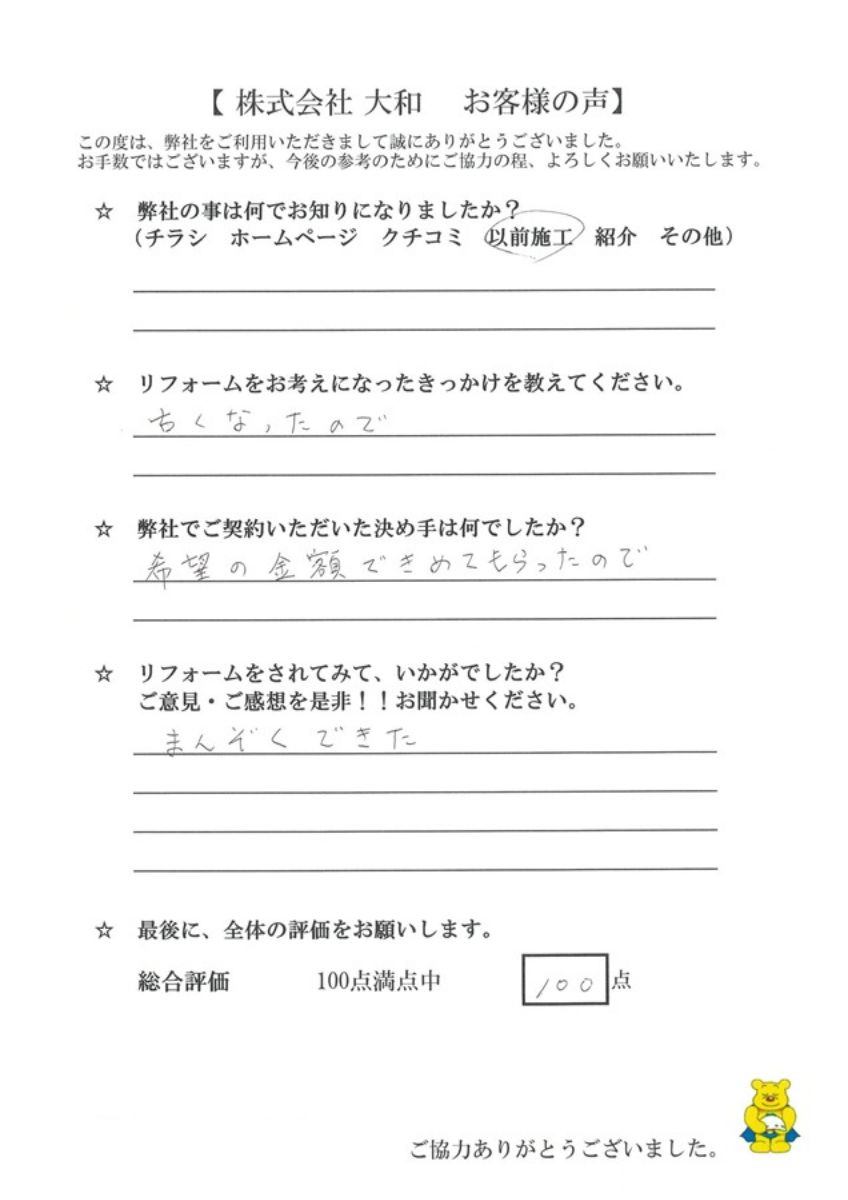 【 株式会社 大和　お客様の声】
この度は、弊社をご利用いただきまして誠にありがとうございました。
お手数ではございますが、今後の参考のためにご協力の程、よろしくお願いいたします。
☆　弊社の事は何でお知りになりましたか？
（チラシ　ホームページ　クチコミ　以前施工　紹介　その他）
☆　リフォームをお考えになったきっかけを教えてください。
古くなったので
☆　弊社でご契約いただいた決め手は何でしたか？
希望の金額できめてもらったので
☆　リフォームをされてみて、いかがでしたか？
ご意見・ご感想を是非！！お聞かせください。
まんぞくできた
☆　最後に、全体の評価をお願いします。
総合評価　100点満点中　100点
ご協力ありがとうございました。